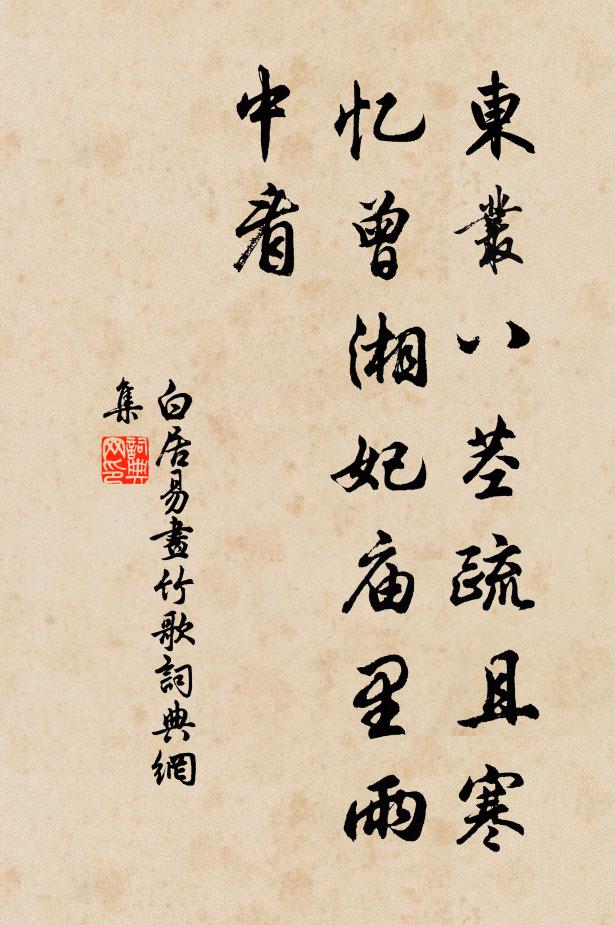 東叢八茎疏且寒
忆曾湘妃庙里雨
中看
白居易畫竹歌詞典網
集
詞典
网印